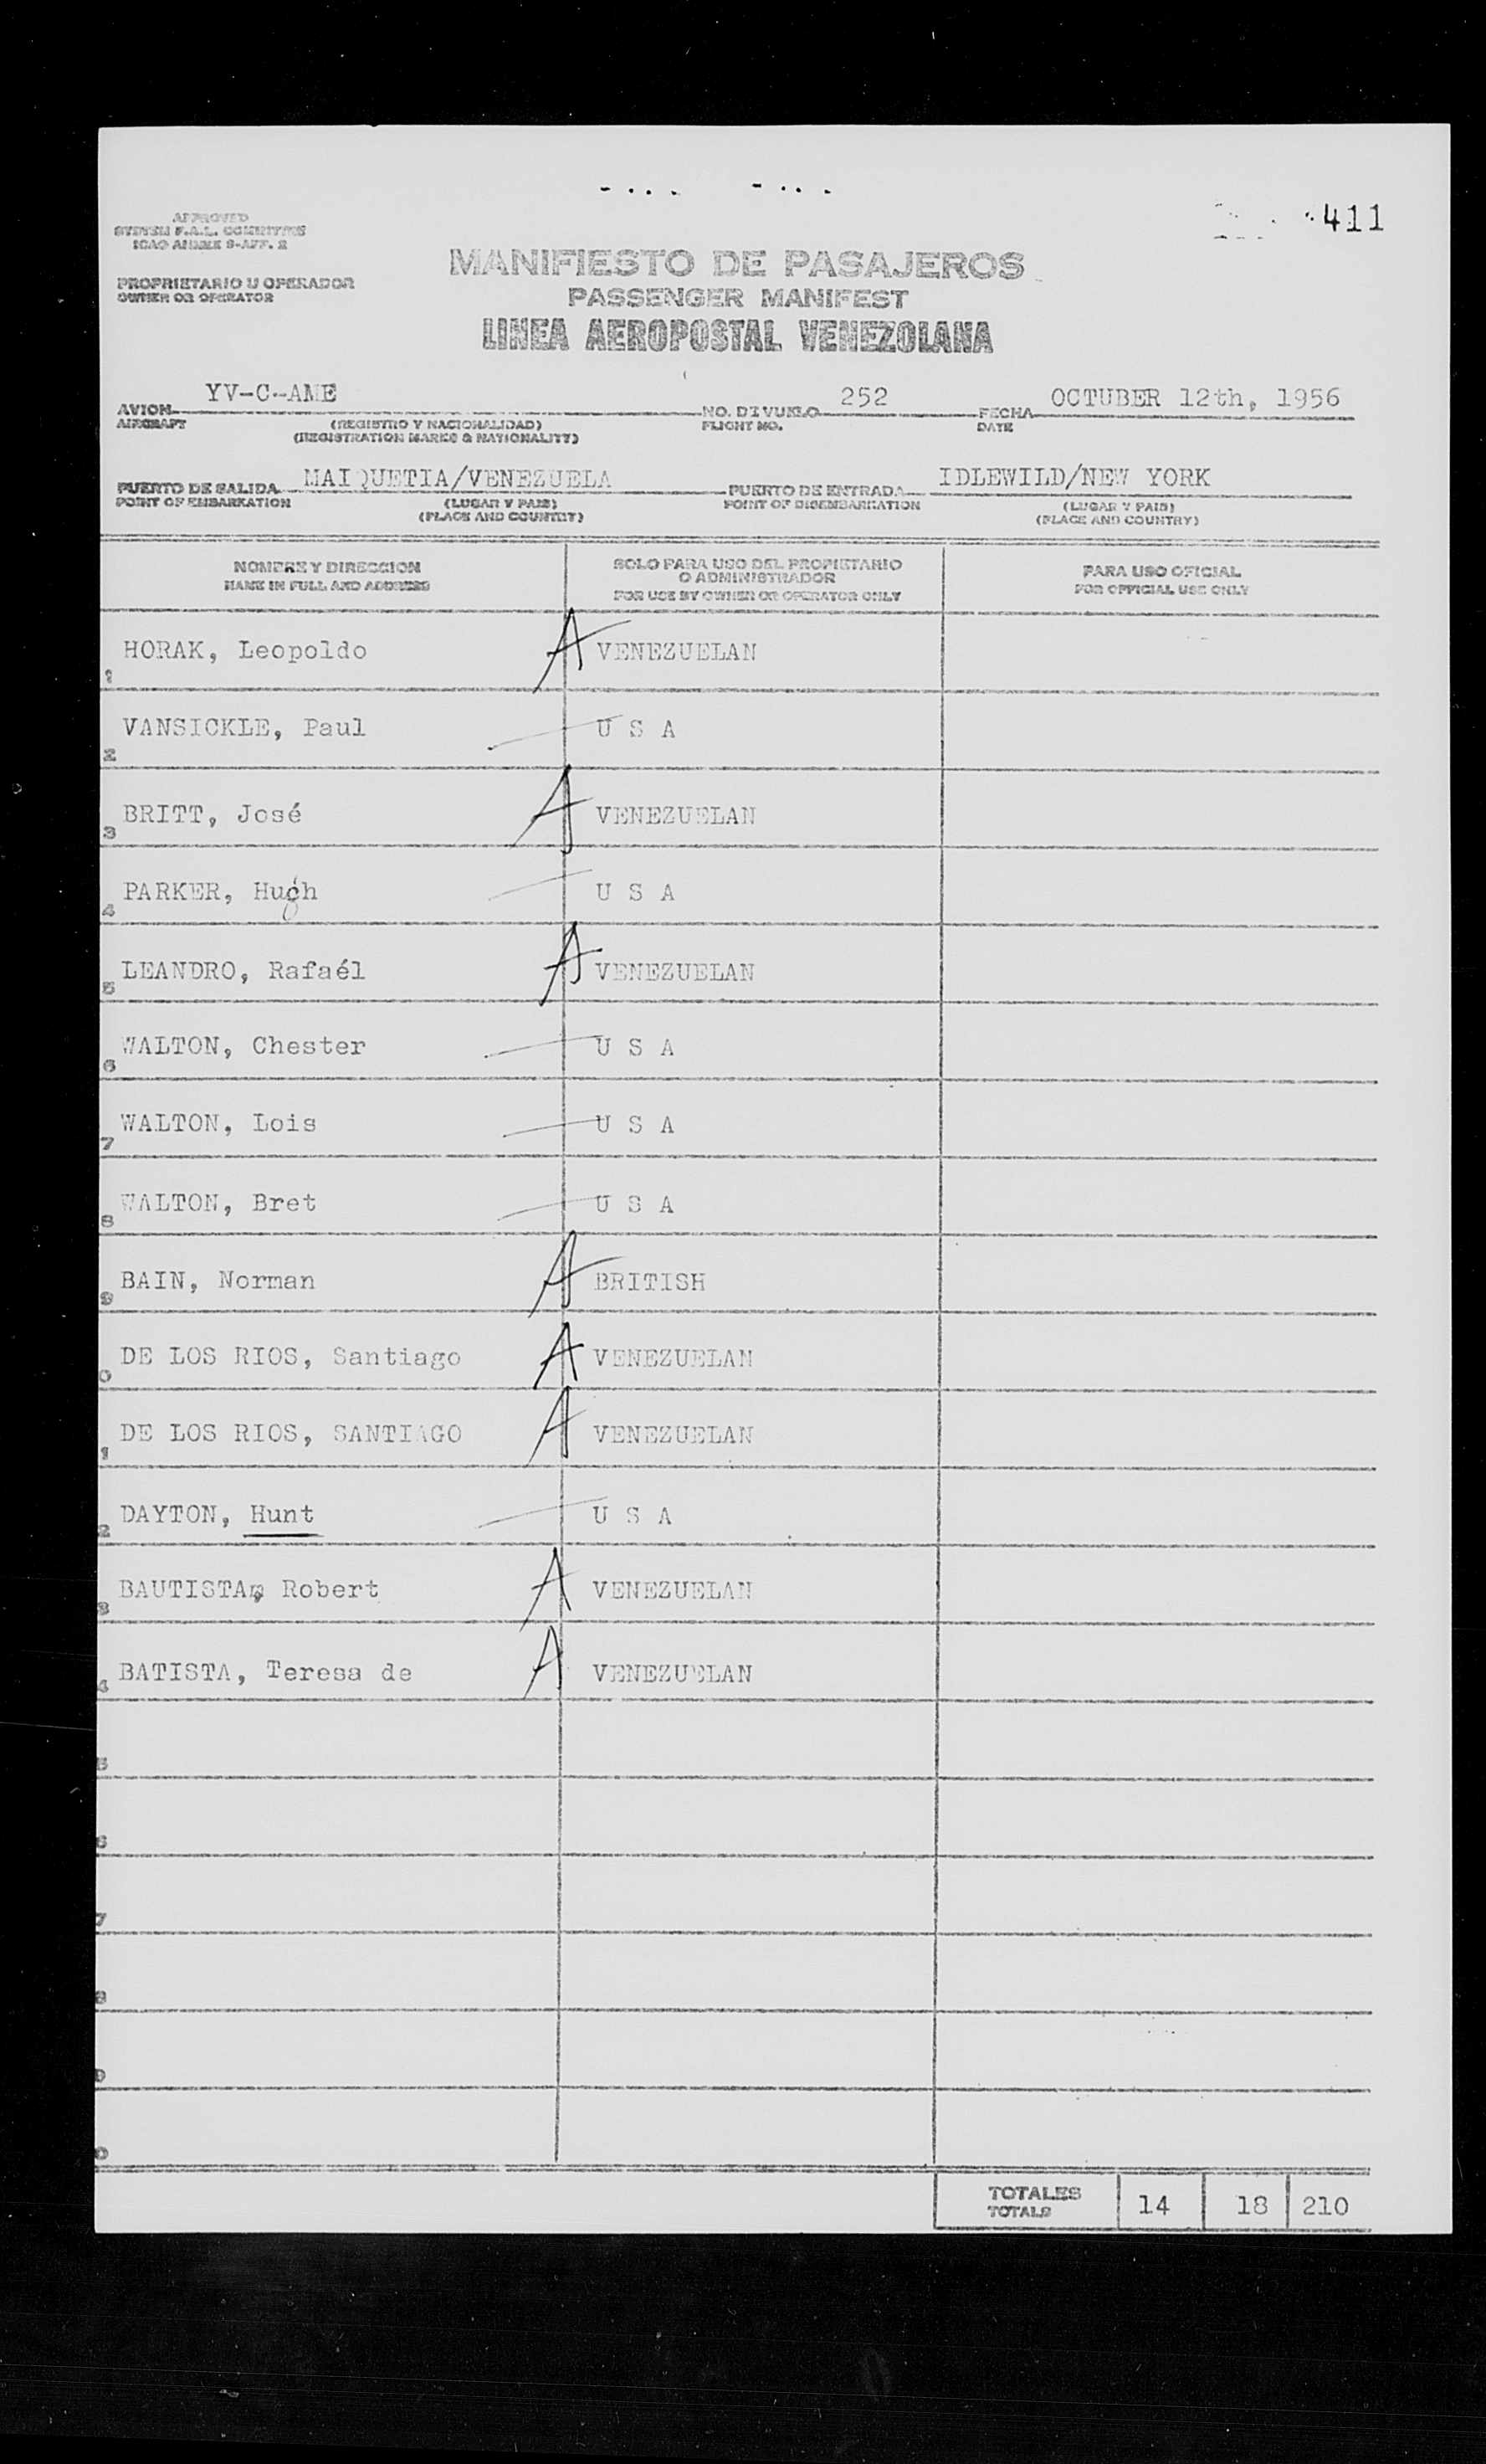 411
APPROVED
SYSTEM F.A.L. COMMITTEE
ICAO ANNEX 9-APP. 2
MANIFIESTO DE PASAJEROS
PROPRIETARIO U OPERADOR
OWNER OR OPERATOR
PASSENGER MANIFEST
LINEA AEROPOSTAL VENEZOLANA
AVION YV-C-AME NO. DE VUELO 252 FECHA OCTUBER 12th, 1956
AIRCRAFT (REGISTRO Y NACIONALIDAD) FLIGHT NO. DATE
(REGISTRATION MARKS & NATIONALITY)
PUERTO DE SALIDA MAIQUETIA/VENEZUELA PUERTO DE ENTRADA IDLEWILD/NEW YORK
POINT OF EMBARKATION (LUGAR Y PAIS) POINT OF DISEMBARKATION (LUGAR Y PAIS)
(PLACE AND COUNTRY) (PLACE AND COUNTRY)
NOMBRE Y DIRECCION SOLO PARA USO DEL PROPIETARIO O ADMINISTRADOR PARA USO OFICIAL
NAME IN FULL AND ADDRESS FOR USE BY OWNER OR OPERATOR ONLY FOR OFFICIAL USE ONLY
1 HORAK, Leopoldo A VENEZUELAN
2 VANSICKLE, Paul U S A
3 BRITT, José A VENEZUELAN
4 PARKER, Hugh U S A
5 LEANDRO, Rafaél A VENEZUELAN
6 WALTON, Chester U S A
7 WALTON, Lois U S A
8 WALTON, Bret U S A
9 BAIN, Norman A BRITISH
0 DE LOS RIOS, Santiago A VENEZUELAN
1 DE LOS RIOS, SANTIAGO A VENEZUELAN
2 DAYTON, Hunt U S A
3 BAUTISTA, Robert A VENEZUELAN
4 BATISTA, Teresa de A VENEZUELAN
5
6
7
8
9
0
TOTALES 14 18 210
TOTALS